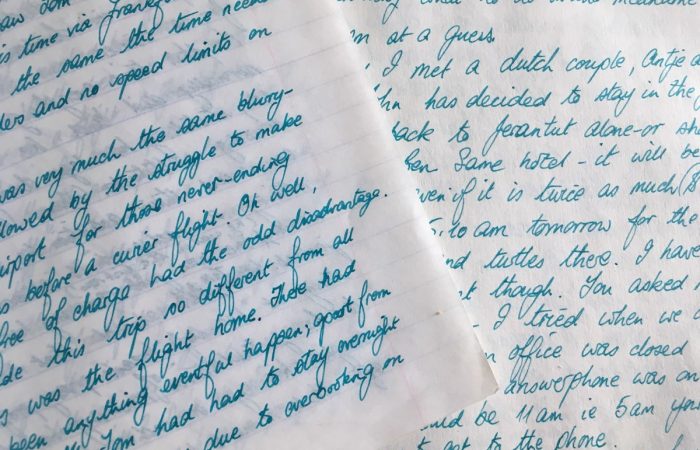 is time via Frankfu
the same the time neede
ders and no speed limits on
was very much the same blurry-
llowed by the struggle to make
airport - for those never-ending
s before a curier flight. Oh well,
free of charge had the odd disadvantage.
de this trip so different from all
s was the flight home. There had
been anything eventful happen; apart from
Tom had had to stay overnight
due to overbooking on
m at a guess
I met a dutch couple, Antje a
hn has decided to stay in the
back to Jerantut alone - or sh
hen. Same hotel - it will be
even if it is twice as much
5:10 am tomorrow for the
nd turtles there. I have
t though. You asked
- I tried when we
office was closed
answerphone was on
uld be 11 am ie 5am you
t get to the phone.